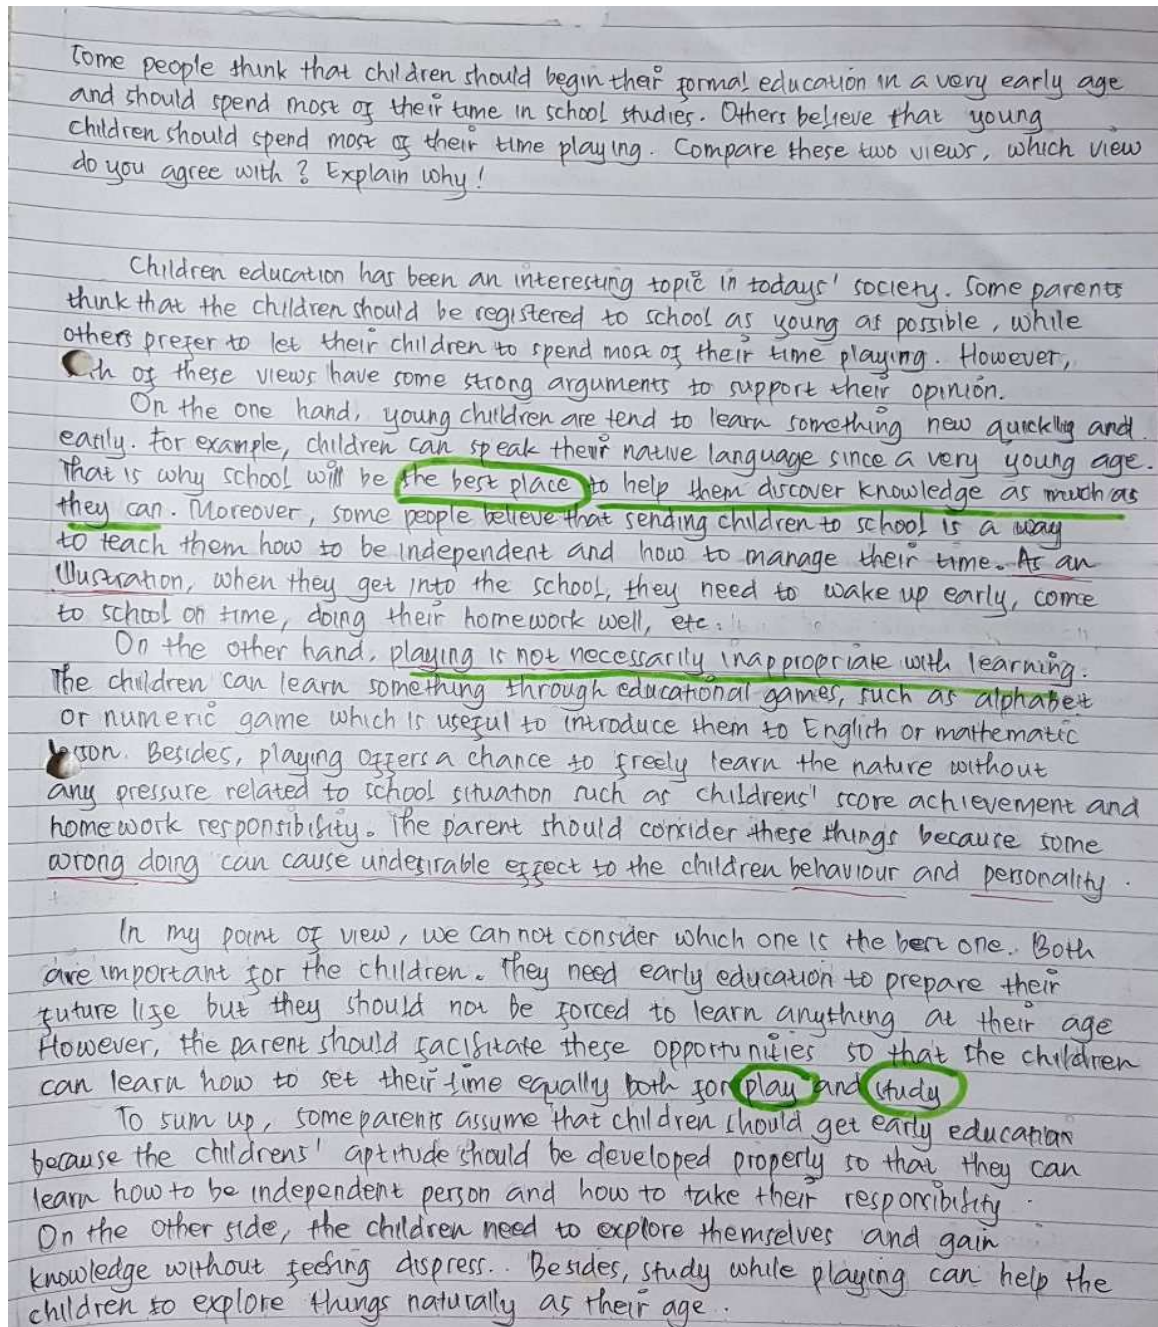 Some people think that children should begin their formal education in a very early age
and should spend most of their time in school studies. Others believe that young
children should spend most of their time playing. Compare these two views, which view
do you agree with? Explain why!
Children education has been an interesting topic in todays' society. Some parents
think that the children should be registered to school as young as possible, while
others prefer to let their children to spend most of their time playing. However,
of these views have some strong arguments to support their opinion.
On the one hand, young children are tend to learn something new quickly and
easily. For example, children can speak their native language since a very young age.
That is why school will be the best place to help them discover knowledge as much as
they can. Moreover, some people believe that sending children to school is a way
to teach them how to be independent and how to manage their time. As an
illustration, when they get into the school, they need to wake up early, come
to school on time, doing their homework well, etc.
On the other hand, playing is not necessarily inappropriate with learning.
The children can learn something through educational games, such as alphabet
or numeric game which is useful to introduce them to English or mathematic
lesson. Besides, playing offers a chance to freely learn the nature without
any pressure related to school situation such as childrens' score achievement and
homework responsibility. The parent should consider these things because some
wrong doing can cause undesirable effect to the children behaviour and personality.
In my point of view, we can not consider which one is the best one. Both
are important for the children. They need early education to prepare their
future life but they should not be forced to learn anything at their age
However, the parent should facilitate these opportunities so that the children
can learn how to set their time equally both for play and study
To sum up, some parents assume that children should get early education
because the childrens' aptitude should be developed properly so that they can
learn how to be independent person and how to take their responsibility.
On the other side, the children need to explore themselves and gain
knowledge without feeling dispress.. Besides, study while playing can help the
children to explore things naturally as their age..